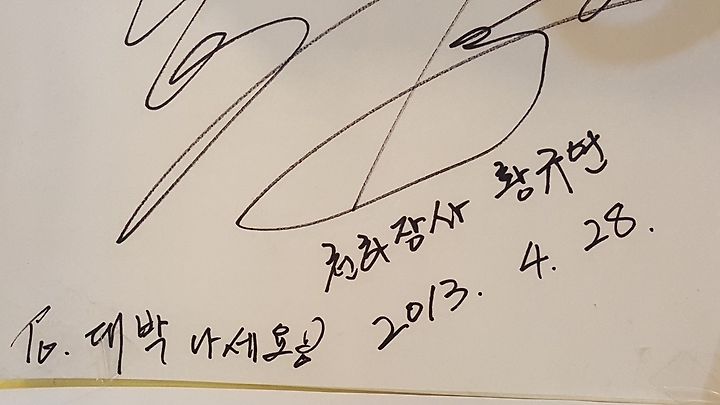 천하장사 황규연
2013. 4. 28.
To. 대박 나세요용